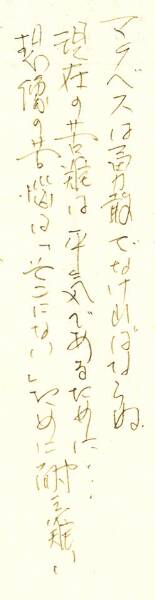 マクベスは勇敢でなければならぬ
現在の苦難は平気であるために…
想像の苦悩は「そこにない」ために耐え難い